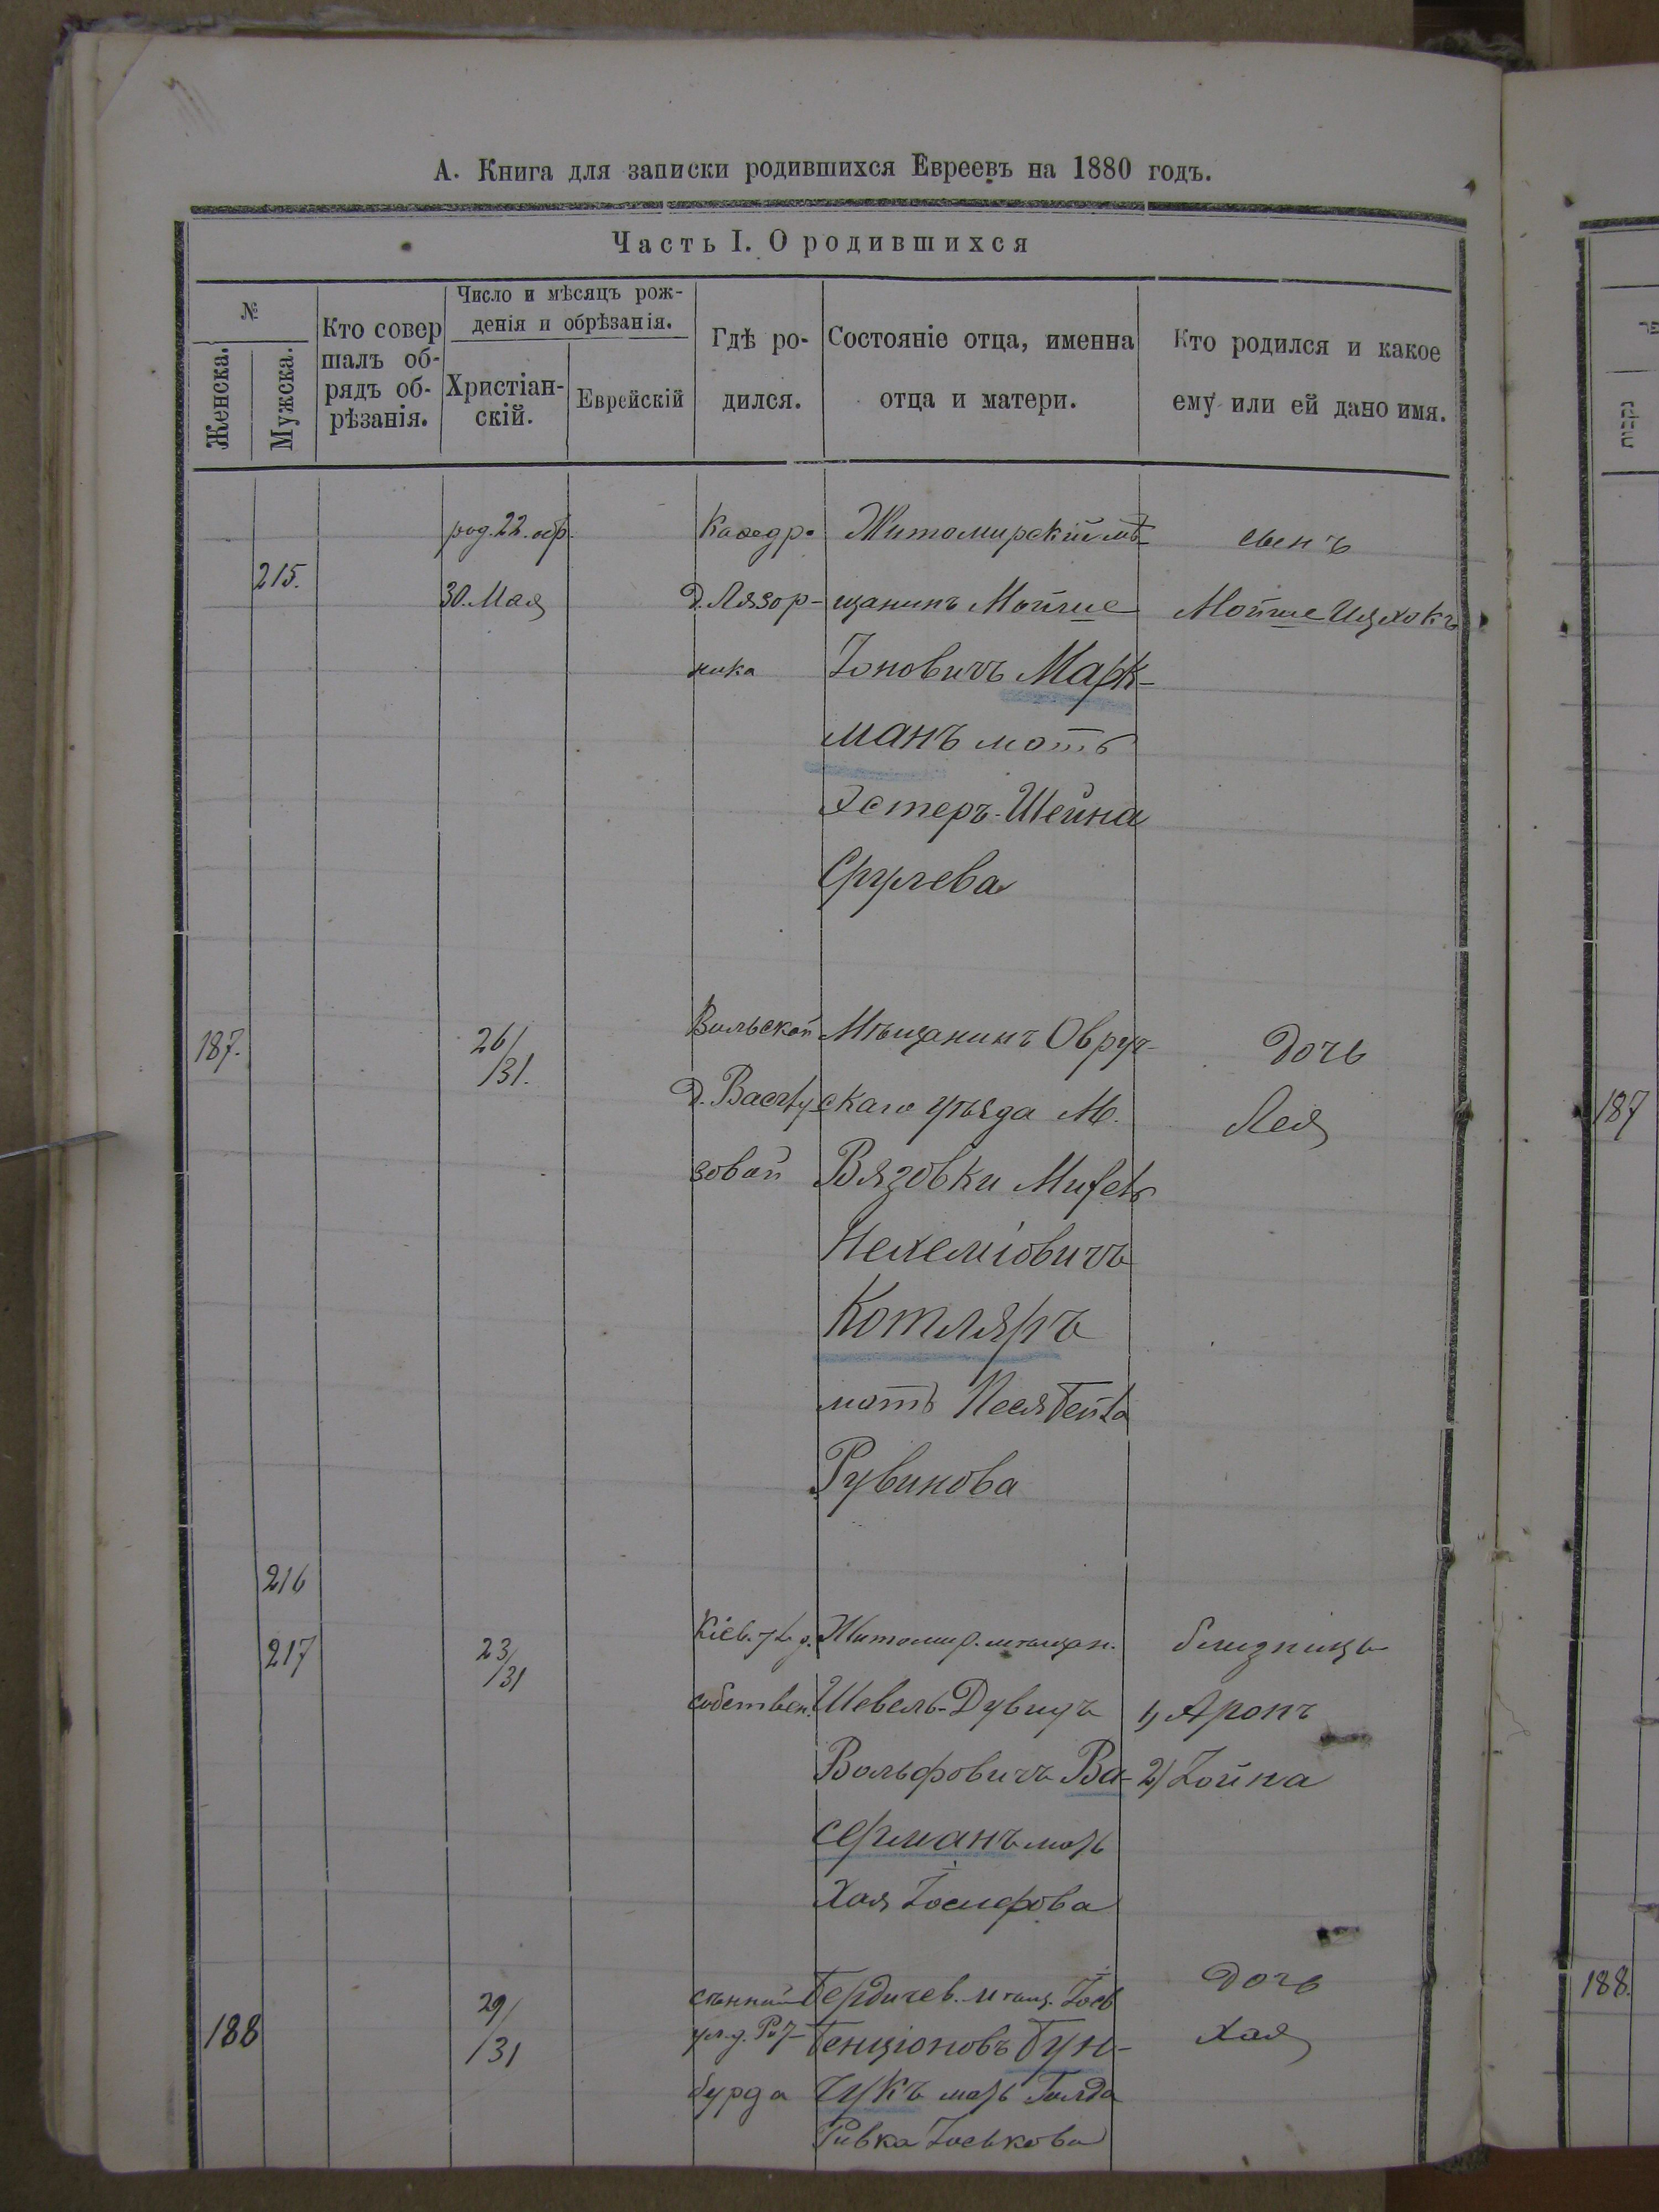 А. Книга для записки родившихся Евреевъ на 1880 годъ.
Часть I. О родившихся
№
Женска.
Мужска.
Кто совер
шалъ об-
рядъ об-
рѣзанія.
Число и мѣсяцъ рож-
денія и обрѣзанія.
Христіан-
скій.
Еврейскій
Гдѣ ро-
дился.
Состояніе отца, именна
отца и матери.
Кто родился и какое
ему или ей дано имя.
נקבות
215.
род. 22. обр.
30. Мая
Кафедр.
д. Лязор-
ника
Житомирскій мѣ-
щанинъ Мойше
Іоновичъ Марк-
манъ мать
Эстеръ-Шейна
Срулева
сынъ
Мойше Ицхокъ
187.
26/
/31.
Вильской
зовой
Мѣщанинъ Овруч-
скаго уѣзда М.
Вязовки
Нехеміовичъ
Котляръ
мать Песя Бейла
Рувинова
дочь
Лея
187
216
217
23/
/31
Кіев. ул. д.
собствен.
Житомир. мѣщан.
Шевель-Дувидъ
Вольфовичъ Ва-
серманъ мать
Хая Іосифова
близницы
1) Аронъ
2) Іойна
188
29/
/31
сѣнний
ул. д.
бурда
Бердичев. мѣщ. Іось
Бенціоновъ Бун-
чукъ мать Голда
Ривка Іоськова
дочь
Хая
188.